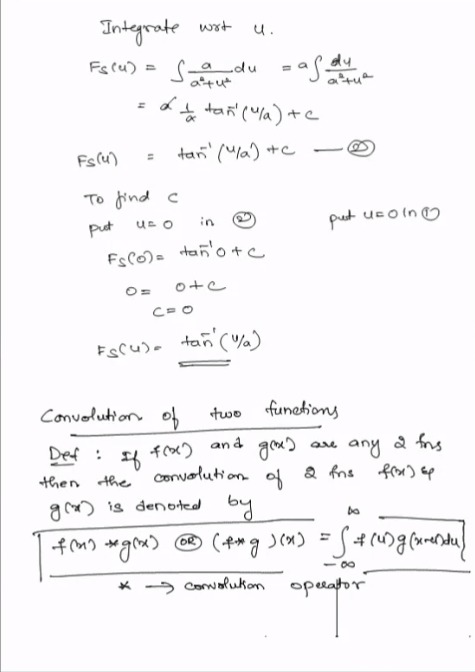 Integrate wrt u.
Fs(u) = ∫ a/(a²+u²) du = a ∫ du/(a²+u²)
= a 1/a tan⁻¹(u/a) + c
Fs(u) = tan⁻¹(u/a) + c — ②
To find c
put u=0 in ② put u=0 in ①
Fs(0) = tan⁻¹0 + c
0 = 0 + c
c = 0
Fs(u) = tan⁻¹(u/a)
Convolution of two functions
Def : If f(x) and g(x) are any 2 fns
then the convolution of 2 fns f(x) &
g(x) is denoted by
f(x) * g(x) OR (f * g)(x) = ∫ from -∞ to ∞ f(u) g(x-u) du
* → convolution operator